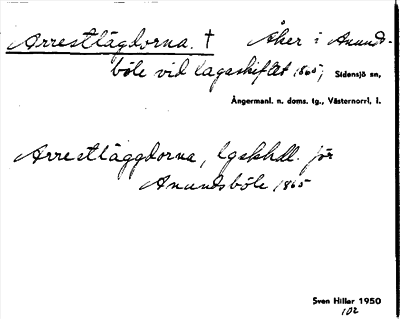 Arrestlägdorna. † Åker i Anund-
böle vid lagaskiftet 1865; Sidensjö sn,
Ångermanl. n. doms. tg., Västernorrl. l.
Arrestläggdorna, lgskhdl. för
Anundsböle 1865
Sven Hillar 1950
102